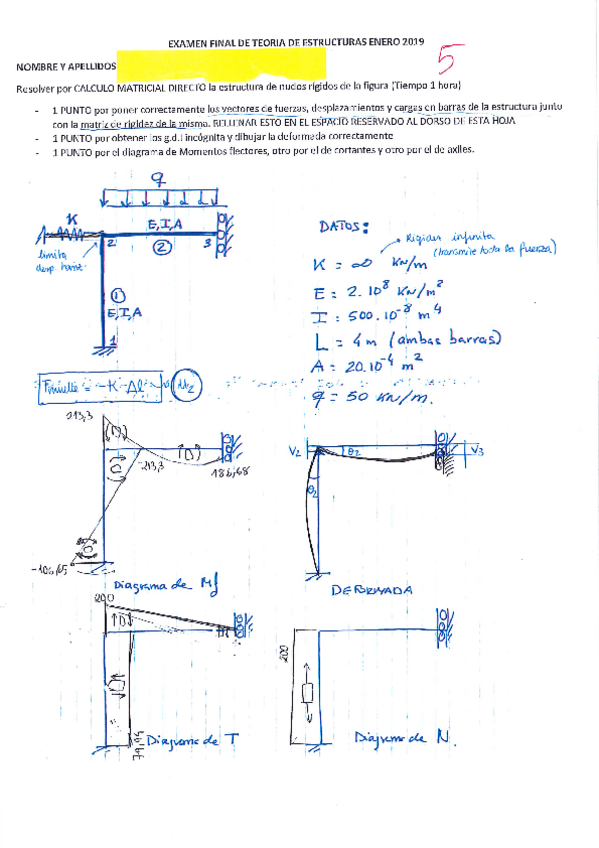 EXAMEN FINAL DE TEORIA DE ESTRUCTURAS ENERO 2019
5
NOMBRE Y APELLIDOS
Resolver por CALCULO MATRICIAL DIRECTO la estructura de nudos rígidos de la figura (Tiempo 1 hora)
- 1 PUNTO por poner correctamente los vectores de fuerzas, desplazamientos y cargas en barras de la estructura junto
con la matriz de rigidez de la misma. RELLENAR ESTO EN EL ESPACIO RESERVADO AL DORSO DE ESTA HOJA
- 1 PUNTO por obtener los g.d.l incógnita y dibujar la deformada correctamente
- 1 PUNTO por el diagrama de Momentos flectores, otro por el de cortantes y otro por el de axiles.
q
K
E, I, A
2
②
3
limita
desp. horiz.
①
E, I, A
1
DATOS:
Rigidez infinita
(transmite toda la fuerza)
K = ∞ KN/m
E = 2·10⁸ KN/m²
I = 500·10⁻⁸ m⁴
L = 4 m (ambas barras)
A = 20·10⁻⁴ m²
q = 50 KN/m.
Fmuelle = -K·Δl
213,3
-213,3
186,68
-106,65
Diagrama de Mf
V2
θ2
V3
θ2
DEFORMADA
200
79,99
Diagrama de T
200
Diagrama de N.